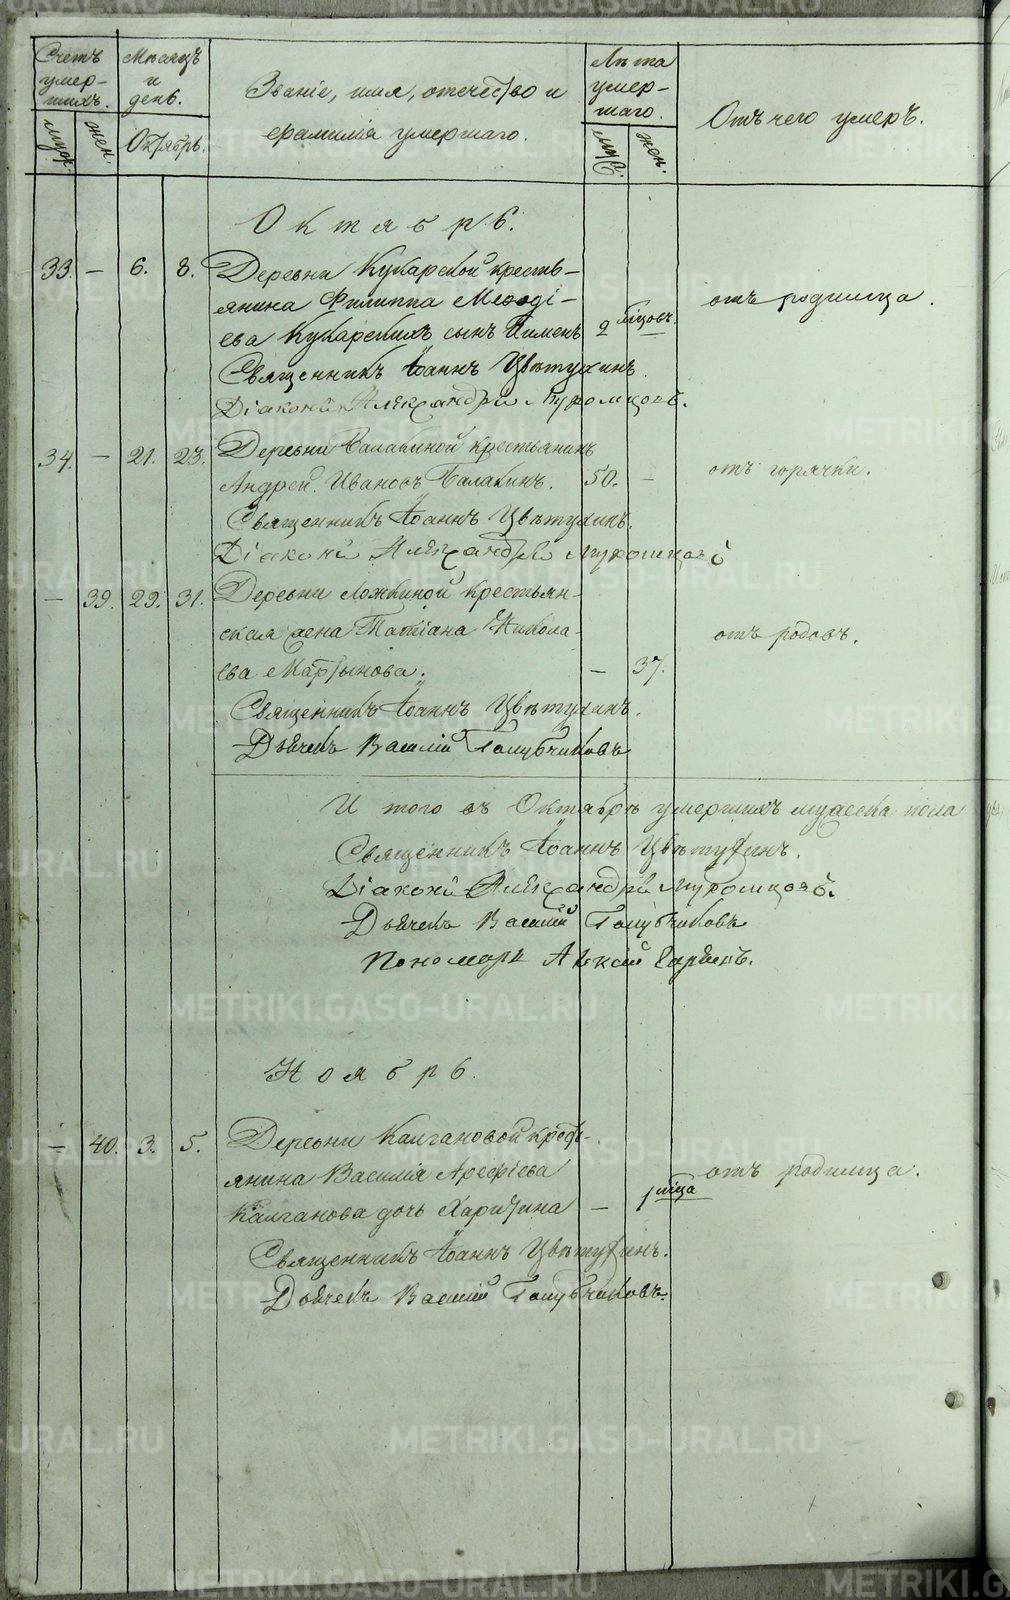 METRIKI.GASO-URAL.RU
Счетъ умер-шихъ.
Мѣсяцъ и день.
Званіе, имя, отечество и фамилія умершаго.
Лѣта умер-шаго.
Отъ чего умеръ.
муж. жен. Октябрь. муж. жен.
Октябрь.
33. — 6. 8. Деревни Кукарской кресть-
янина Филиппа Меѳоді- отъ родимца.
ева Кукарскихъ сынъ Пименъ 2 мѣцовъ.
Священникъ Іоаннъ Цвѣтухинъ.
Діаконъ Александръ
34. — 21. 23. Деревни Балакиной крестьянинъ
Андрей Ивановъ Балакинъ. 50. — отъ горячки.
Священникъ Іоаннъ Цвѣтухинъ.
Діаконъ Александръ
— 39. 29. 31. Деревни Ложкиной крестьян-
ская жена Татіана Никола- отъ родовъ.
ева Мартынова. — 37.
Священникъ Іоаннъ Цвѣтухинъ.
Дьячекъ Василій Голубчиковъ
И того въ Октябрѣ умершихъ мужеска пола
Священникъ Іоаннъ Цвѣтухинъ.
Діаконъ Александръ
Дьячекъ Василій Голубчиковъ
Пономарь Алексій
Ноябрь.
— 40. 3. 5. Деревни Калгановой крест-
янина Василія Арефіева отъ родимца.
Калганова дочь Харитина — 1 мѣца
Священникъ Іоаннъ Цвѣтухинъ.
Дьячекъ Василій Голубчиковъ.